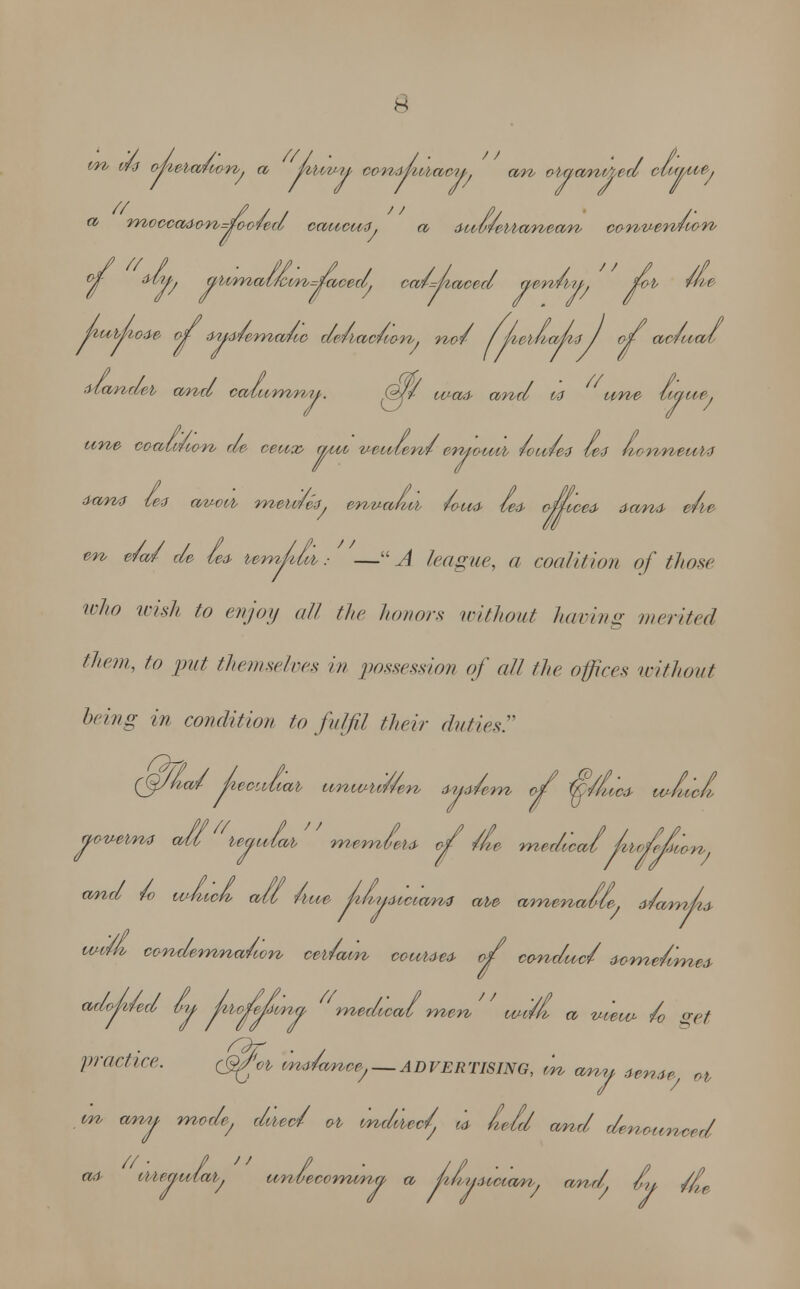 8
in its operation, a "privy conspiracy," an organized clique,
a "moccason-footed caucus," a subterranean convention
of "sly, grimalkin-faced, cat-paced gentry," for the
purpose of systematic detraction, not (perhaps) of actual
slander and calumny. It was and is "une ligue,
une coalition de ceux qui veulent enjouir toutes les honneurs
sans les avoir merités, envahir tous les offices sans etre
en etat de les remplir:"—"A league, a coalition of those
who wish to enjoy all the honors without having merited
them, to put themselves in possession of all the offices without
being in condition to fulfil their duties."
That peculiar unwritten system of Ethics which
governs all "regular" members of the medical profession,
and to which all true physicians are amenable, stamps
with condemnation certain courses of conduct sometimes
adopted by professing "medical men" with a view to get
practice. For instance,—ADVERTISING, in any sense, or
in any mode, direct or indirect, is held and denounced
as "irregular," unbecoming a physician, and, by the